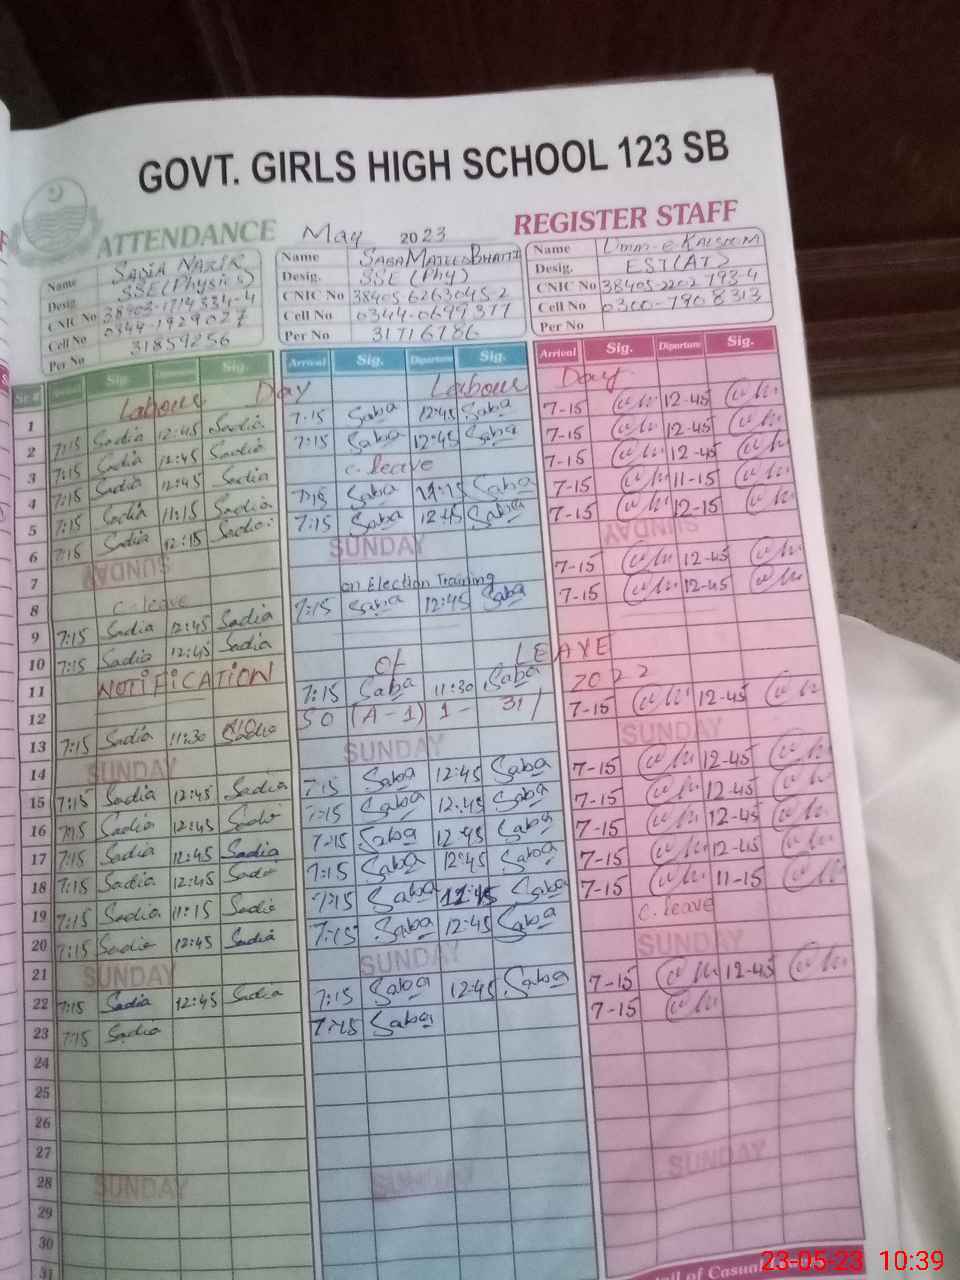 GOVT. GIRLS HIGH SCHOOL 123 SB
ATTENDANCE May 2023 REGISTER STAFF
Name SADIA NAZIR
Desig. SSE (Physics)
CNIC No 38403-1714334-4
Cell No 0344-1929027
Per No 31859256
Name SABA MAJEED BHATTI
Desig. SSE (Phy)
CNIC No 38405 6263045-2
Cell No 0344-0699377
Per No 31716786
Name Umm-e-KALSOOM
Desig. EST (AT)
CNIC No 38405-2202793-4
Cell No 0300-7908313
Per No
Sr # Sig. Sig. Arrival Sig. Diparture Sig. Arrival Sig. Diparture Sig.
1 Labour Day Labour Day
2 7:15 Sadia 12:45 Sadia 7:15 Saba 12:45 Saba 7-15 12-45
3 7:15 Sadia 12:45 Sadia 7:15 Saba 12:45 Saba 7-15 12-45
4 7:15 Sadia 12:45 Sadia c.leave 7-15 12-45
5 7:15 Sadia 11:15 Sadia 7:15 Saba Saba 7-15 11-15
6 7:15 Sadia 12:15 Sadia 7:15 Saba 12:45 Saba 7-15 12-15
7 SUNDAY SUNDAY SUNDAY
8 c.leave on Election Training 7-15 12-45
9 7:15 Sadia 12:45 Sadia 7:15 Saba 12:45 Saba 7-15 12-45
10 7:15 Sadia 12:45 Sadia
11 NOTIFICATION Of LEAVE
12 7:15 Saba 11:30 Saba 2022
13 7:15 Sadia 11:30 Sadia SO (A-1) 1- 31/ 7-15 12-45
14 SUNDAY SUNDAY SUNDAY
15 7:15 Sadia 12:45 Sadia 7:15 Saba 12:45 Saba 7-15 12-45
16 7:15 Sadia 12:45 Sadia 7:15 Saba 12:45 Saba 7-15 12-45
17 7:15 Sadia 12:45 Sadia 7:15 Saba 12:45 Saba 7-15 12-45
18 7:15 Sadia 12:45 Sadia 7:15 Saba 12:45 Saba 7-15 12-45
19 7:15 Sadia 11:15 Sadia 7:15 Saba Saba 7-15 11-15
20 7:15 Sadia 12:45 Sadia 7:15 Saba 12:45 Saba c.leave
21 SUNDAY SUNDAY SUNDAY
22 7:15 Sadia 12:45 Sadia 7:15 Saba 12:45 Saba 7-15 12-45
23 7:15 Sadia 7:15 Saba 7-15
24
25
26
27
28 SUNDAY SUNDAY SUNDAY
29
30
31
of Casual
23-05-23 10:39